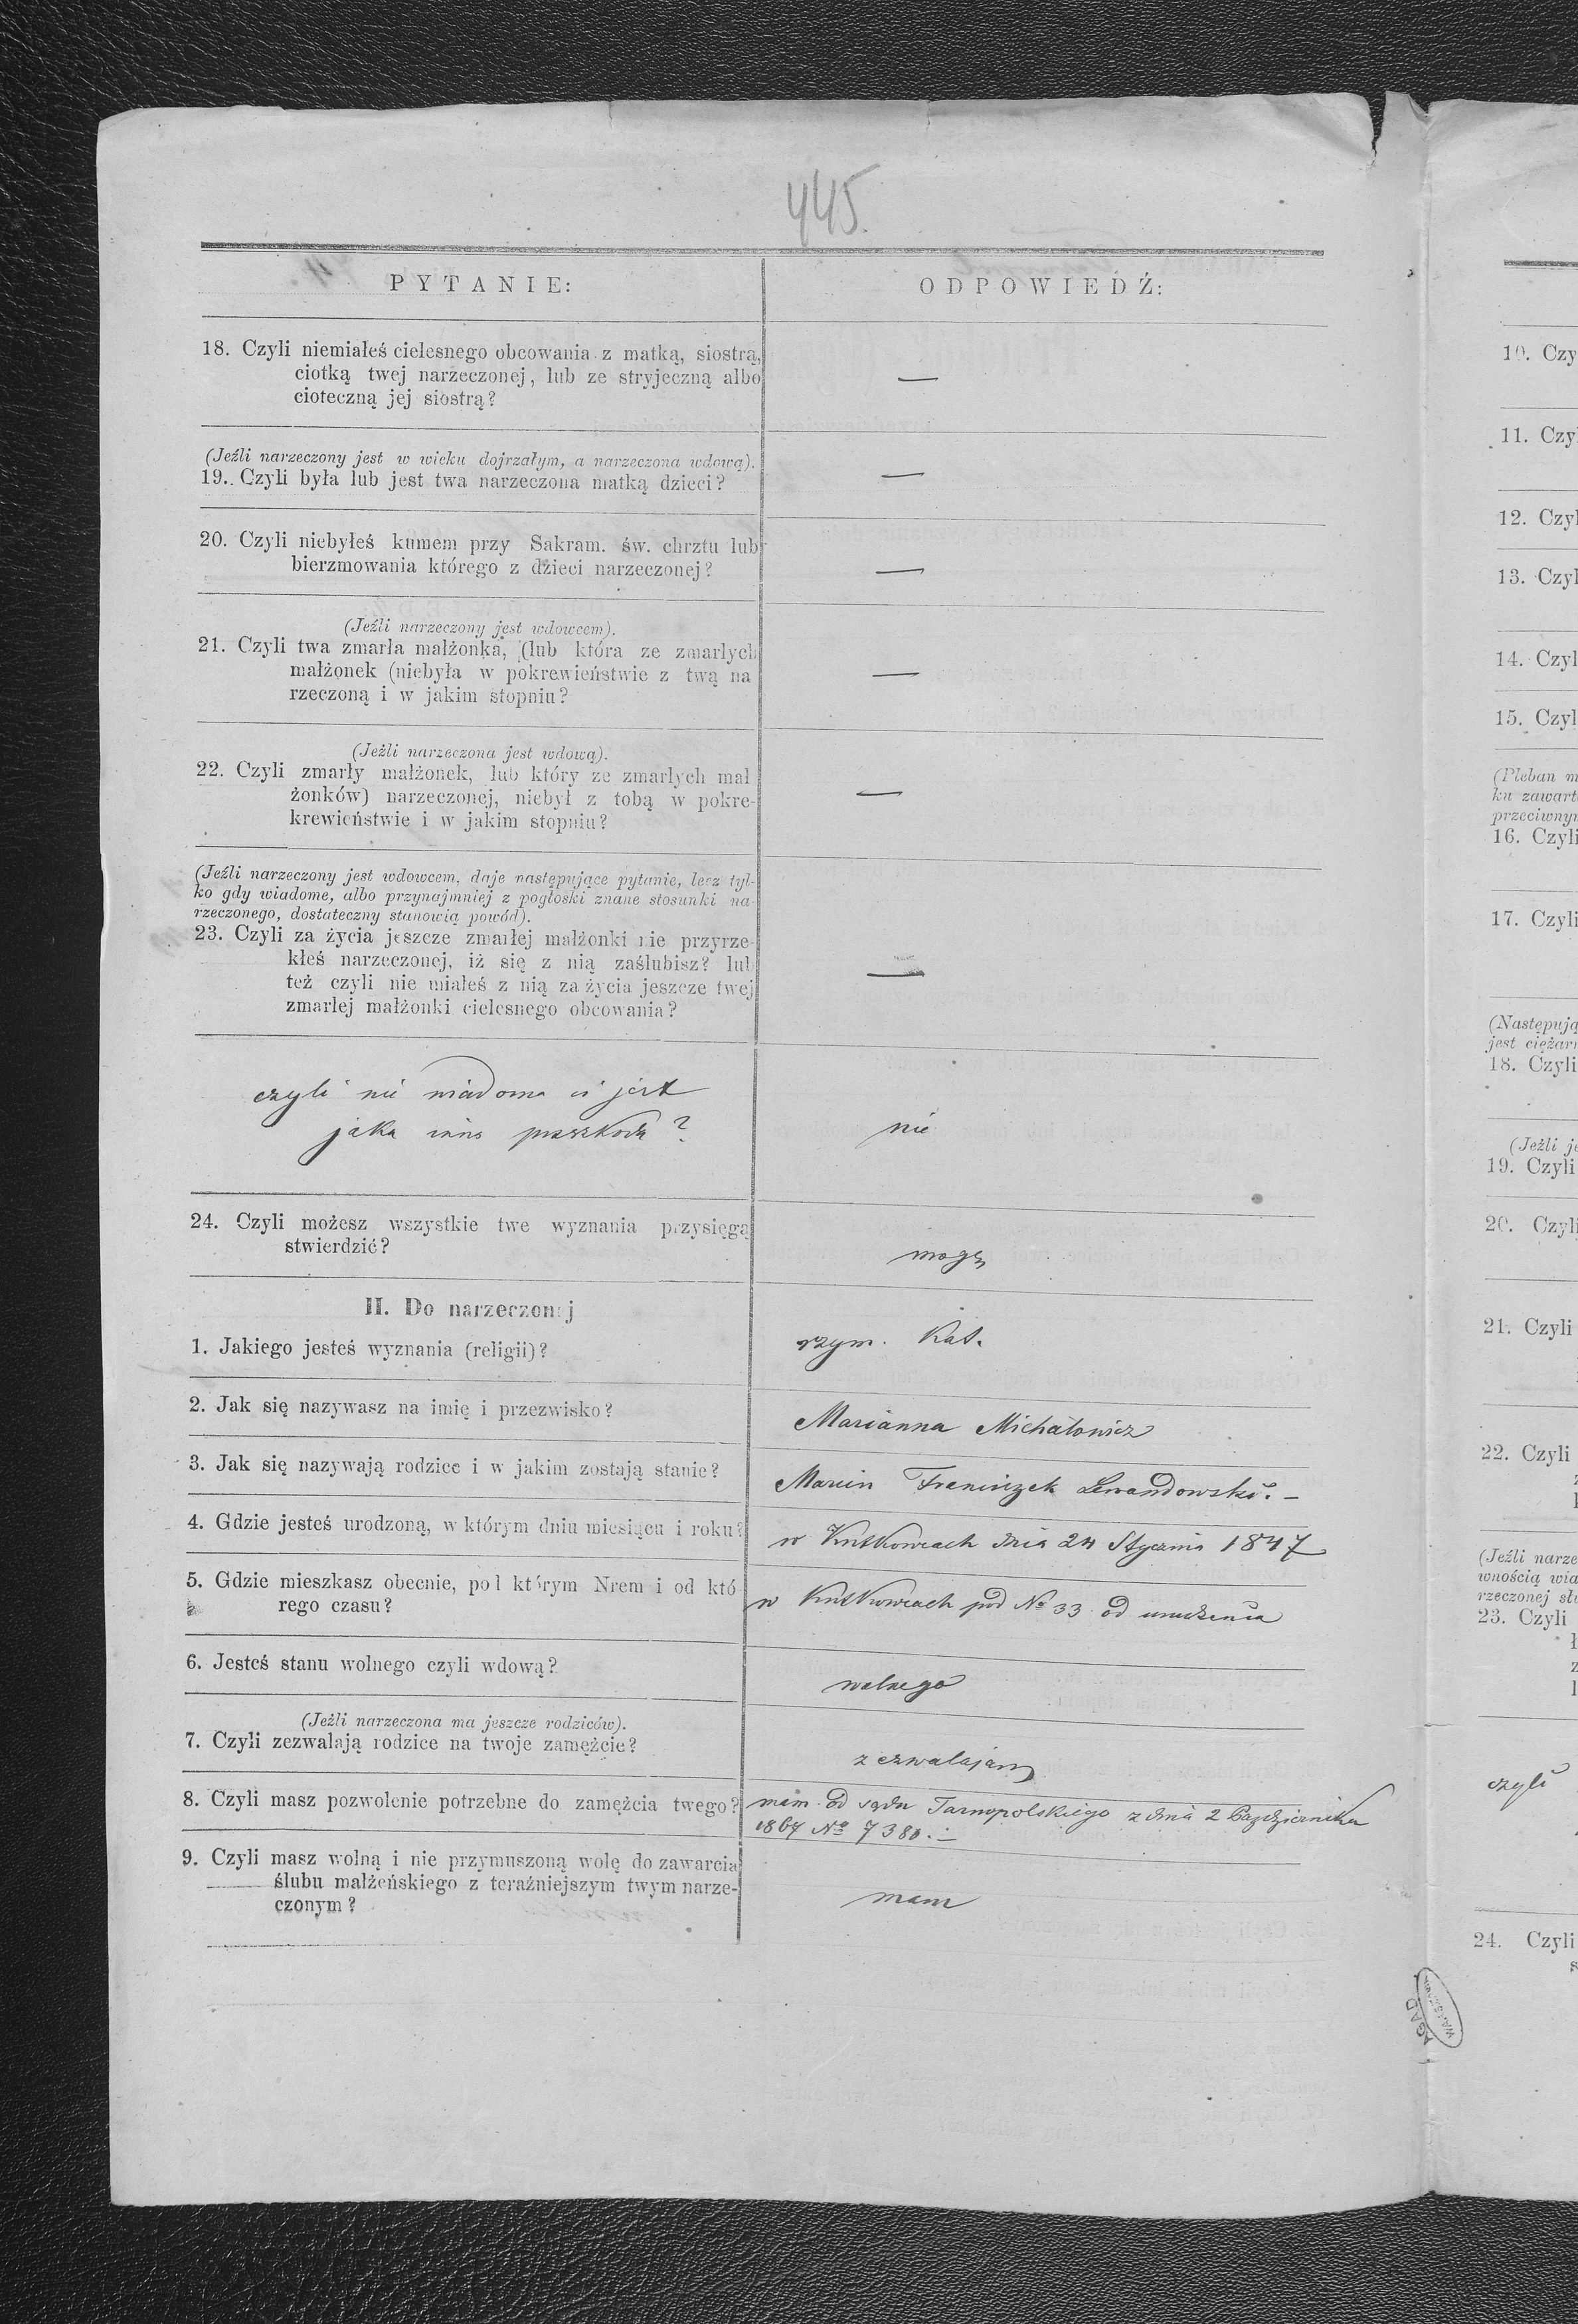 445.
PYTANIE:
ODPOWIEDŹ:
18. Czyli niemiałeś cielesnego obcowania z matką, siostrą,
ciotką twej narzeczonej, lub ze stryjeczną albo
cioteczną jej siostrą?
—
(Jeźli narzeczony jest w wieku dojrzałym, a narzeczona wdową).
19. Czyli była lub jest twa narzeczona matką dzieci?
—
20. Czyli niebyłeś kumem przy Sakram. św. chrztu lub
bierzmowania którego z dzieci narzeczonej?
—
(Jeźli narzeczony jest wdowcem).
21. Czyli twa zmarła małżonka, (lub która ze zmarłych
małżonek (niebyła w pokrewieństwie z twą na
rzeczoną i w jakim stopniu?
—
(Jeźli narzeczona jest wdową).
22. Czyli zmarły małżonek, lub który ze zmarłych mał
żonków) narzeczonej, niebył z tobą w pokre-
krewieństwie i w jakim stopniu?
—
(Jeźli narzeczony jest wdowcem, daje następujące pytanie, lecz tyl-
ko gdy wiadome, albo przynajmniej z pogłoski znane stosunki na-
rzeczonego, dostateczny stanowią powód).
23. Czyli za życia jeszcze zmarłej małżonki nie przyrze-
kłeś narzeczonej, iż się z nią zaślubisz? lub
też czyli nie miałeś z nią za życia jeszcze twej
zmarłej małżonki cielesnego obcowania?
—
czyli nie wiadoma ci jest
jaka inna przeszkoda?
nie
24. Czyli możesz wszystkie twe wyznania przysięgą
stwierdzić?
mogę
II. Do narzeczonej
1. Jakiego jesteś wyznania (religii)?
rzym. Kat.
2. Jak się nazywasz na imię i przezwisko?
Marianna Michałowicz
3. Jak się nazywają rodzice i w jakim zostają stanie?
Marcin Franciszek Lewandowski. —
4. Gdzie jesteś urodzoną, w którym dniu miesiącu i roku?
w Kutkowcach dnia 24 Stycznia 1847
5. Gdzie mieszkasz obecnie, pod którym Nrem i od któ
rego czasu?
w Kutkowcach pod No 33 od urodzenia
6. Jesteś stanu wolnego czyli wdową?
wolnego
(Jeźli narzeczona ma jeszcze rodziców).
7. Czyli zezwalają rodzice na twoje zamężcie?
zezwalają
8. Czyli masz pozwolenie potrzebne do zamężcia twego?
mam od sądu Tarnopolskiego z dnia 2 Października
1867 No 7380. —
9. Czyli masz wolną i nie przymuszoną wolę do zawarcia
ślubu małżeńskiego z teraźniejszym twym narze-
czonym?
mam
10. Czy
11. Czy
12. Czyl
13. Czyl
14. Czyl
15. Czyl
(Pleban m
ku zawart
przeciwnym
16. Czyli
17. Czyli
(Następują
jest ciężarn
18. Czyli
(Jeźli je
19. Czyli
20. Czyli
21. Czyli
22. Czyli
(Jeźli narze
wnością wia
rzeczonej sł
23. Czyli
czyli
24. Czyli
AGAD
WARSZAWA